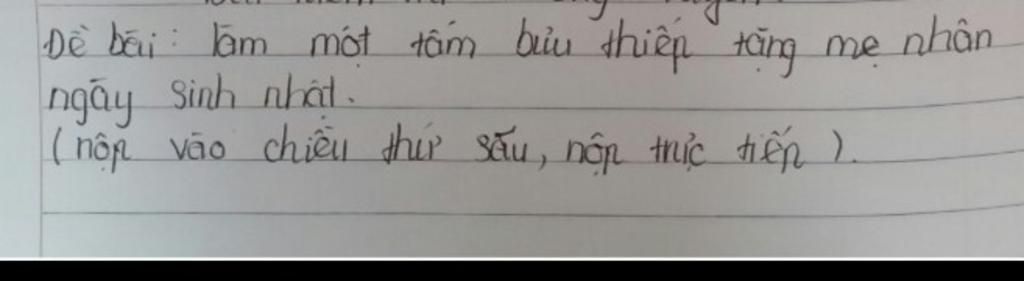 Đề bài: làm một tấm bưu thiếp tặng mẹ nhân
ngày sinh nhật.
(nộp vào chiều thứ sáu, nộp trực tiếp).